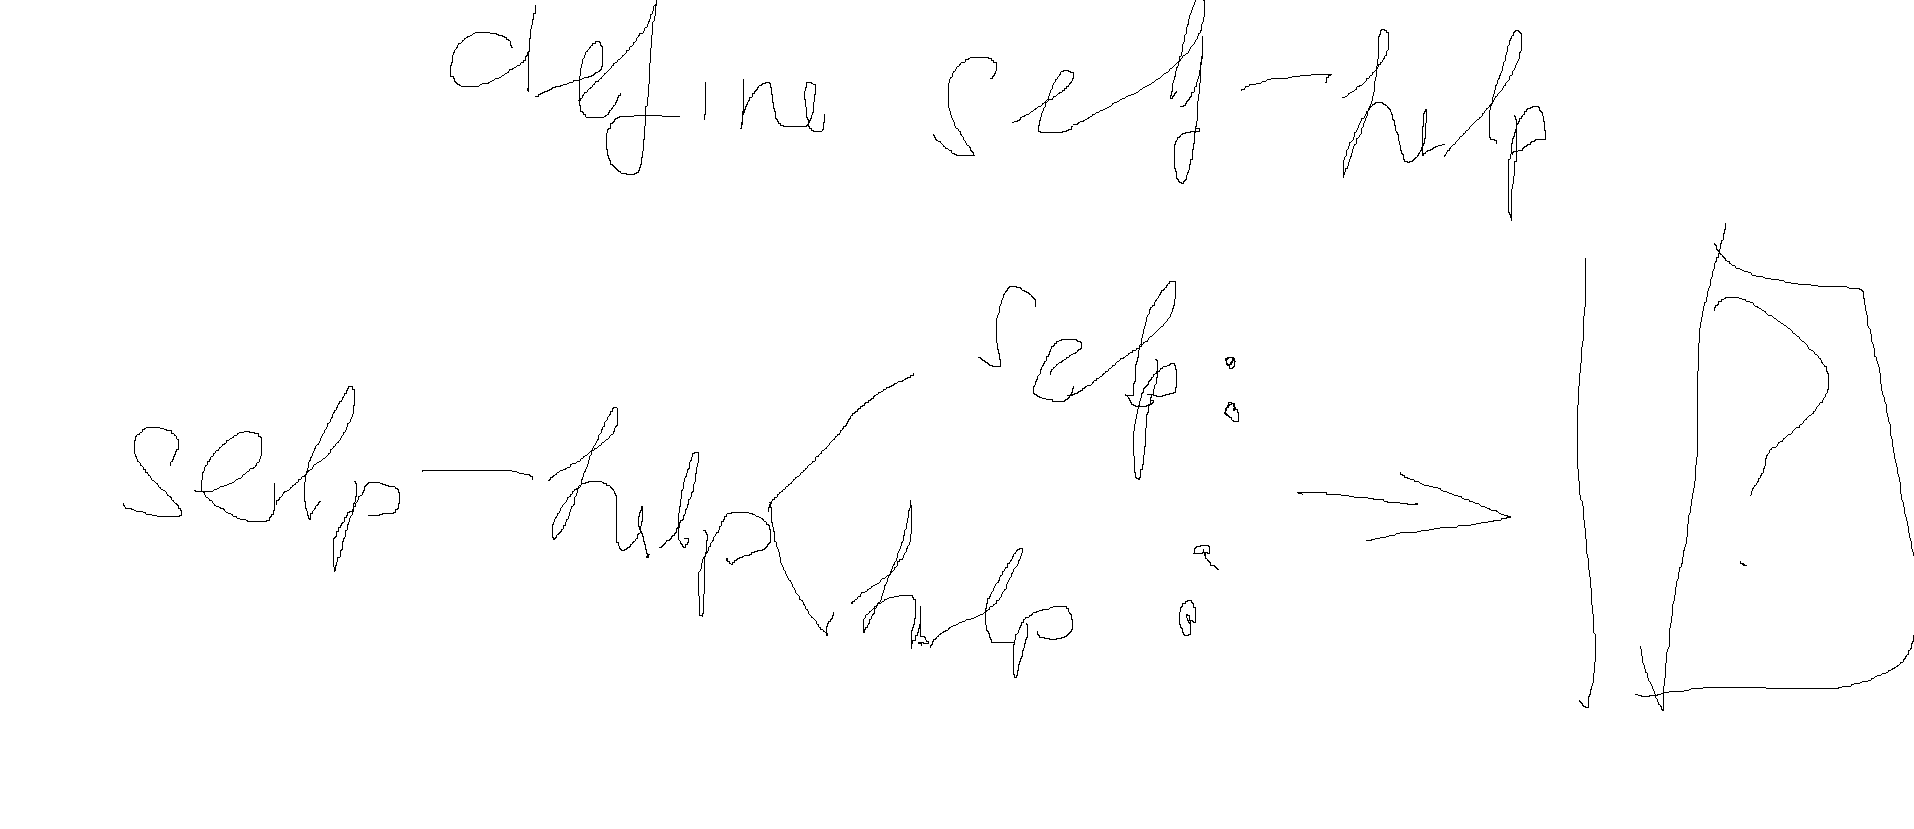 define self-help
selp:
selp-help
help:
?